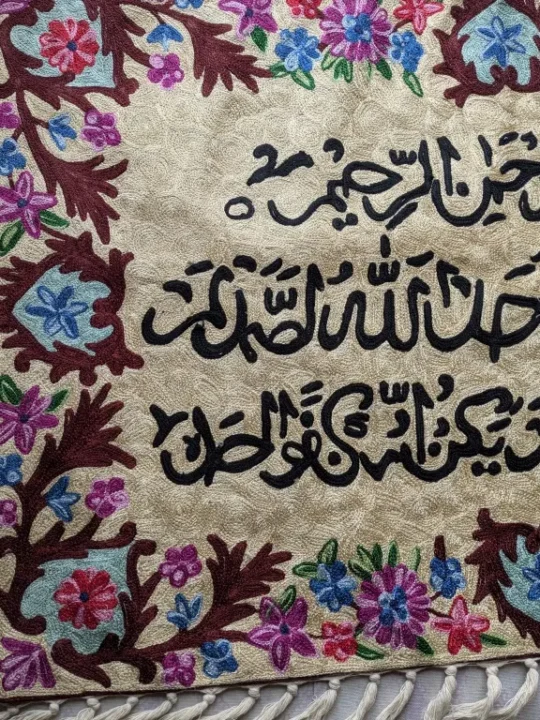 حمن الرحيم
حد الله الصمد لم
يكن له كفوا احد